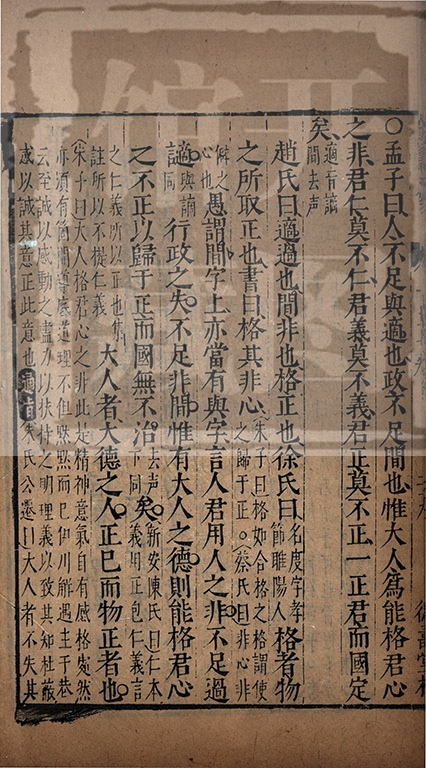 ○孟子曰人不足與適也政不足間也惟大人爲能格君心
之非君仁莫不仁君義莫不義君正莫不正一正君而國定
矣
適音謫
間去声
趙氏曰適過也間非也格正也徐氏曰
名度字孝
節睢陽人
格者物
之所取正也書曰格其非心
朱子曰格如合格之格謂使
之歸于正○蔡氏曰非心非
僻之
心也
愚謂間字上亦當有與字言人君用人之非不足過
謫
與讁
同
行政之失不足非間惟有大人之德則能格君心
之不正以歸于正而國無不治
去声
下同
矣
新安陳氏曰仁本
義用正包仁義言
之仁義所以正也集
註所以不提仁義
大人者大德之人正己而物正者也
朱子曰大人格君心之非此是精神意氣自有感格處然
亦須有箇開導底道理不但黙黙而已伊川解遇主于巷
云至誠以感動之盡力以扶持之明理義以致其知杜蔽
惑以誠其意正此意也
通旨
朱氏公遷曰大人者不失其